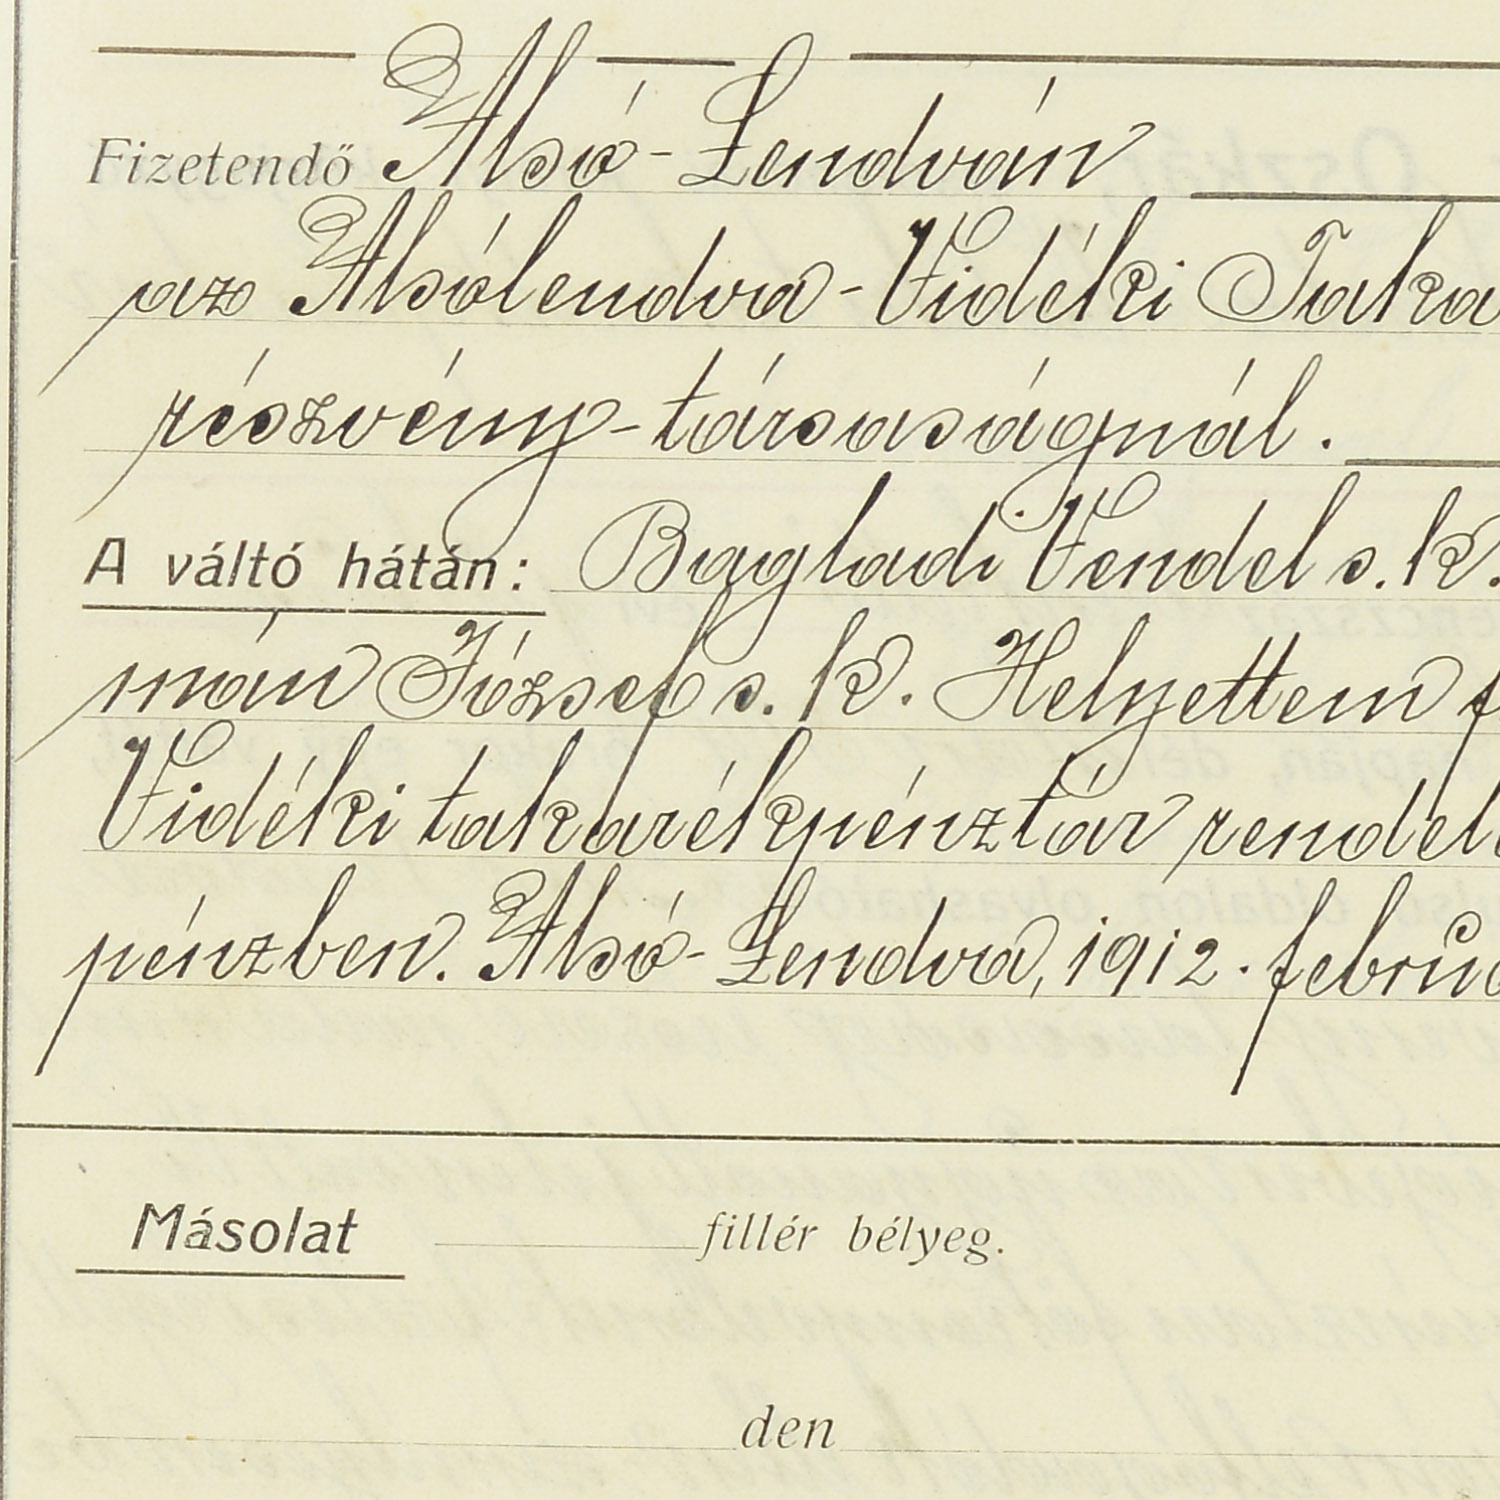 Fizetendő Alsó-Lendván
az Alsólendva-Vidéki Taka
részvény-társaságnál.
A váltó hátán: Bagladi Vendel s. k.
mán József s. k. Helyettem f
Vidéki takarékpénztár rendele
pénzben. Alsó-Lendva, 1912. februá
Másolat fillér bélyeg.
den